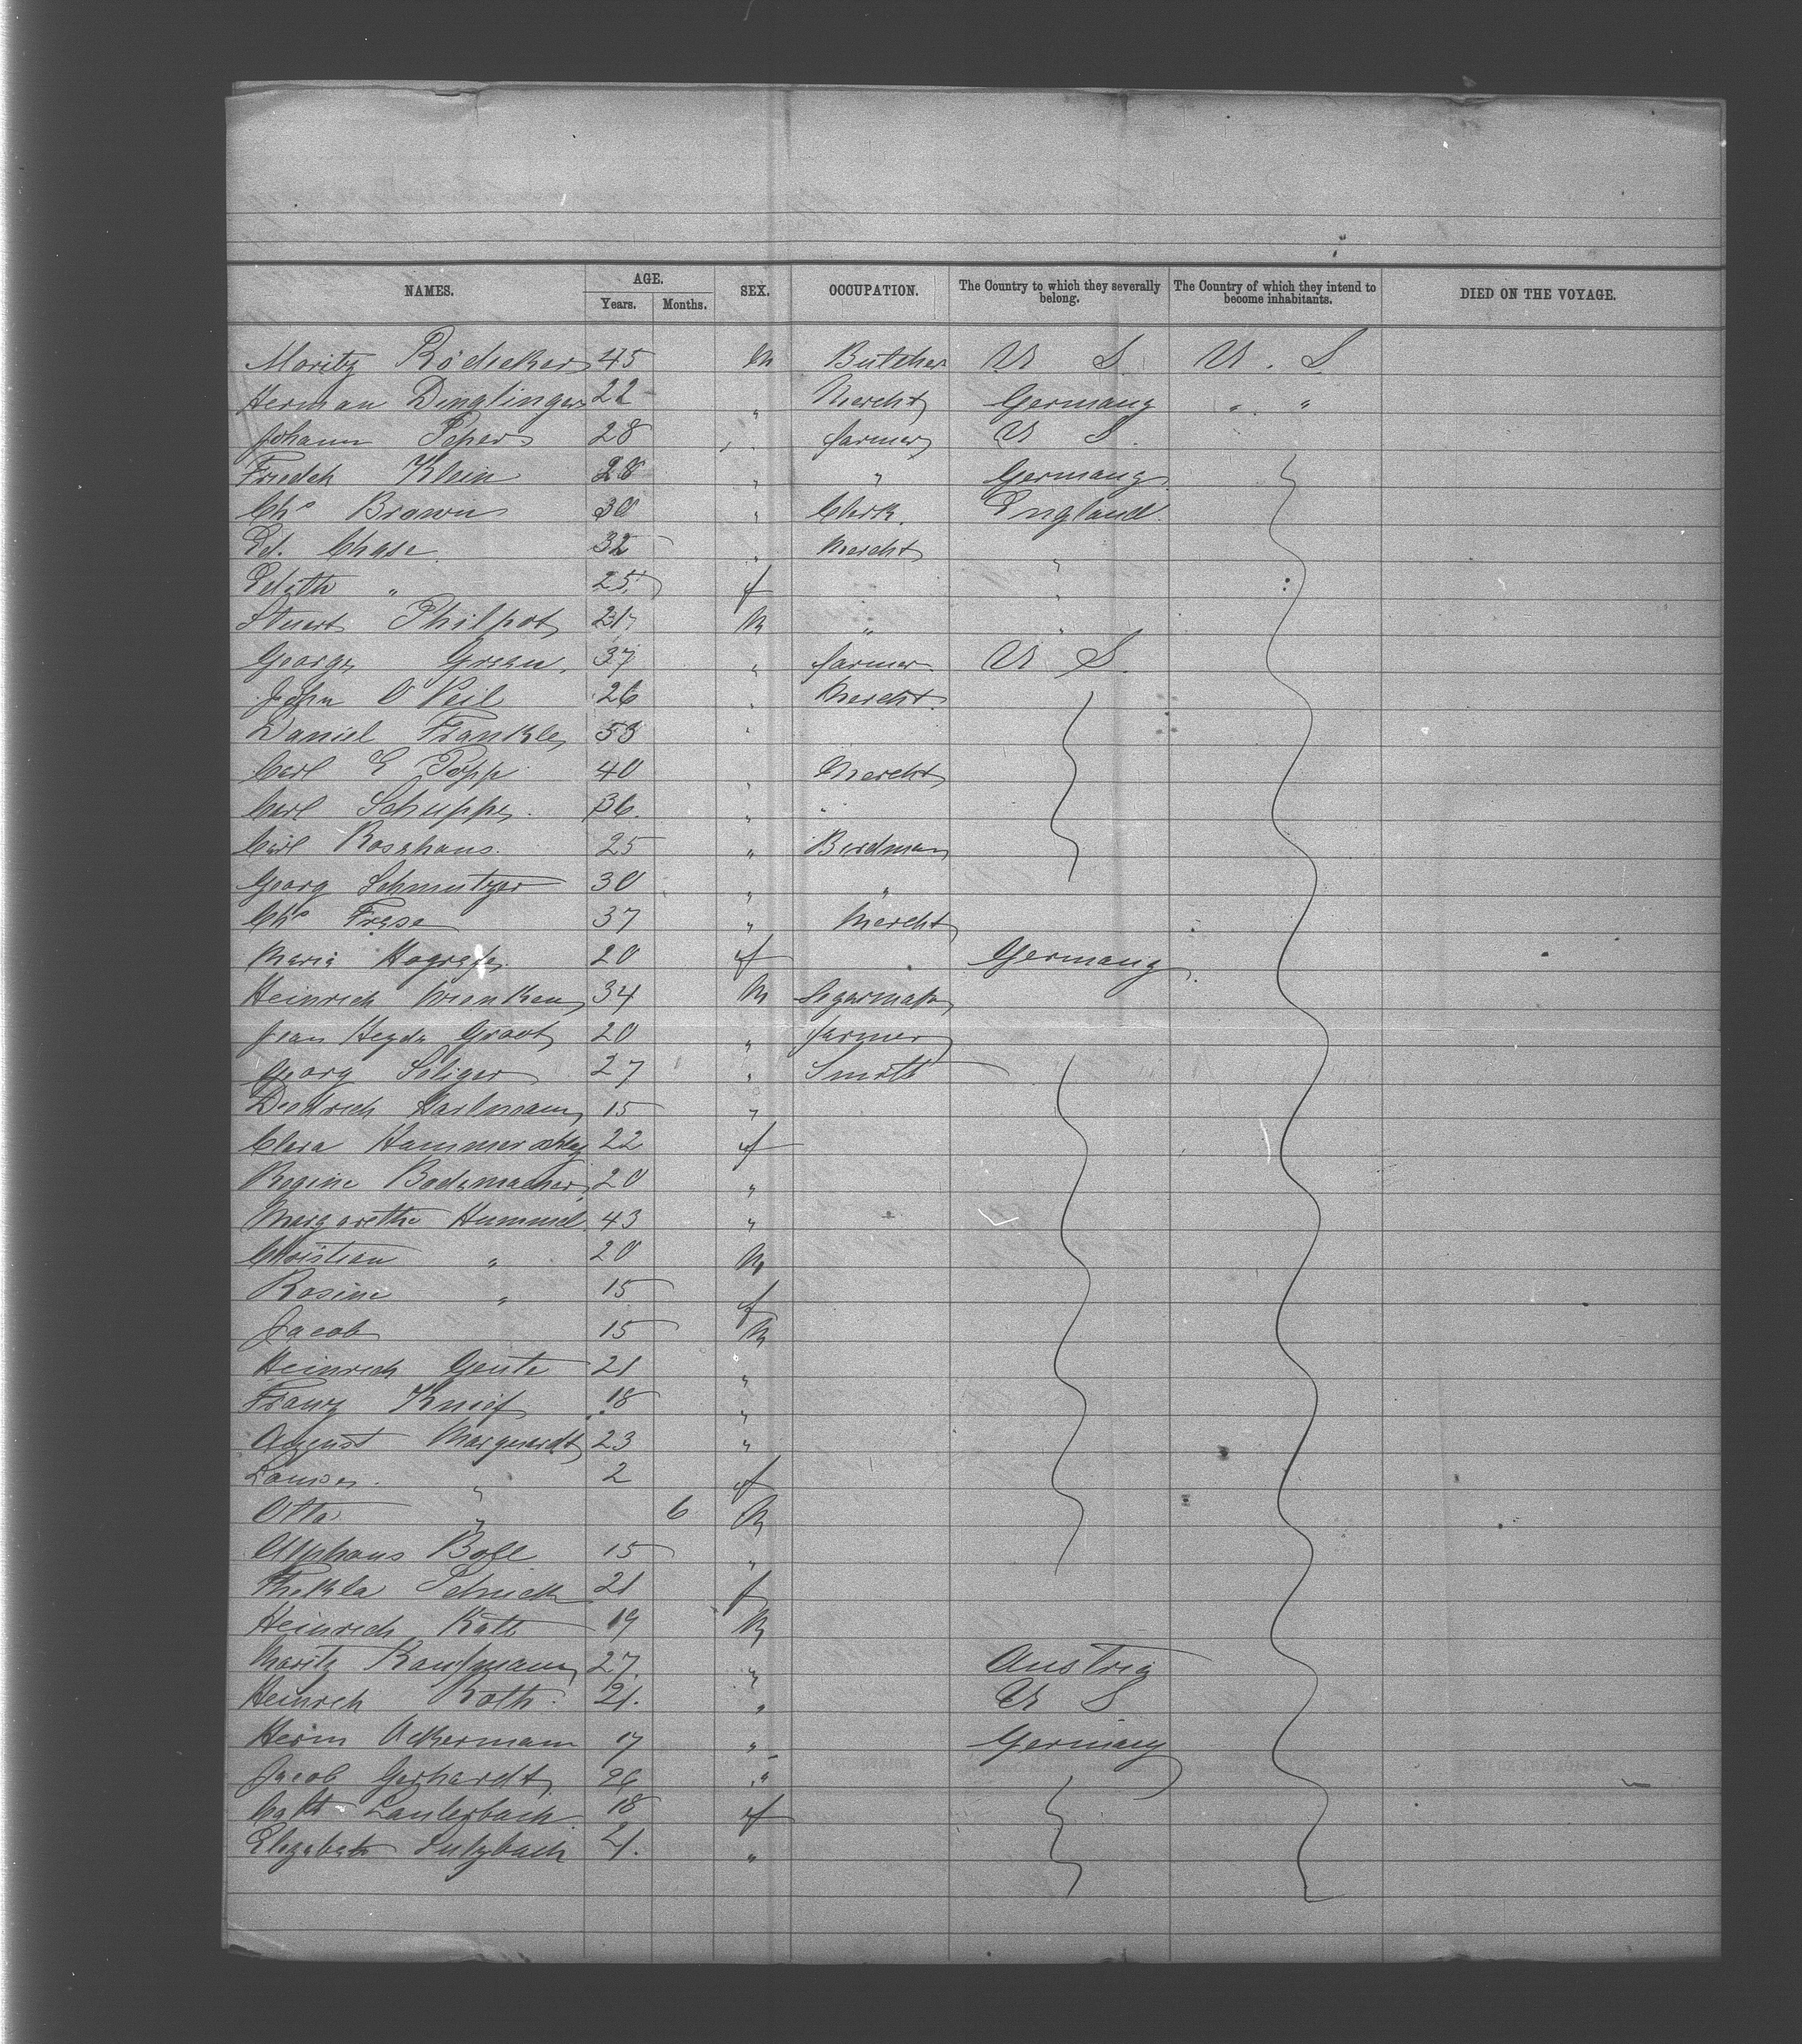 NAMES. AGE. Years. Months. SEX. OCCUPATION. The Country to which they severally belong. The Country of which they intend to become inhabitants. DIED ON THE VOYAGE.
Moritz Rödicker 45 M Butcher U S. U. S.
Herman Dinglinger 22 " Mercht Germany " "
Johann Peper 28 " farmer U S.
Friedch Klein 28 " " Germany
Chs Brown 30 " Clerk. England.
Ed. Chase 32 " Mercht "
Edith " 25 f "
Stuart Philpot M " "
George Green 37 " farmer U S.
John O Neil 26 " Mercht.
Daniel Frankle 53 "
Carl E Popp 40 " Mercht
Carl Schuppe. 36. " "
Carl Rosehaus. 25 " Birdman
Georg Schmutzer 30 " "
Chs Frese 37 " Mercht
Maria Hogrefe. 20 f Germany
Heinrich Wrenken 34 M Segarmaker
Jean Heyde Groot 20 " farmer
Georg Seliger 27 " Smith
Diedrich Hartmann 15 "
Clara Hammerschlag 22 f
Regine 20 "
Margarethe Hummel 43 "
Christian " 20 M
Rosine " 15 f
Jacob 15 M
Heinrich Gente 21 "
Franz Knief 18 "
August Marquardt 23 "
Louise " 2 f
Otto " 6 M
Alphons Boll 15 "
Thekla Schuck 21 f
Heinrich 19 M
Moritz Kaufmann 27. " Austria
Heinrich Roth. 21. " U S
Herm Ackermann 17 " Germany
Jacob Gerhardt 26 "
Cath Lauterbach 18 f
Elizabeth Sulzbach 21. "